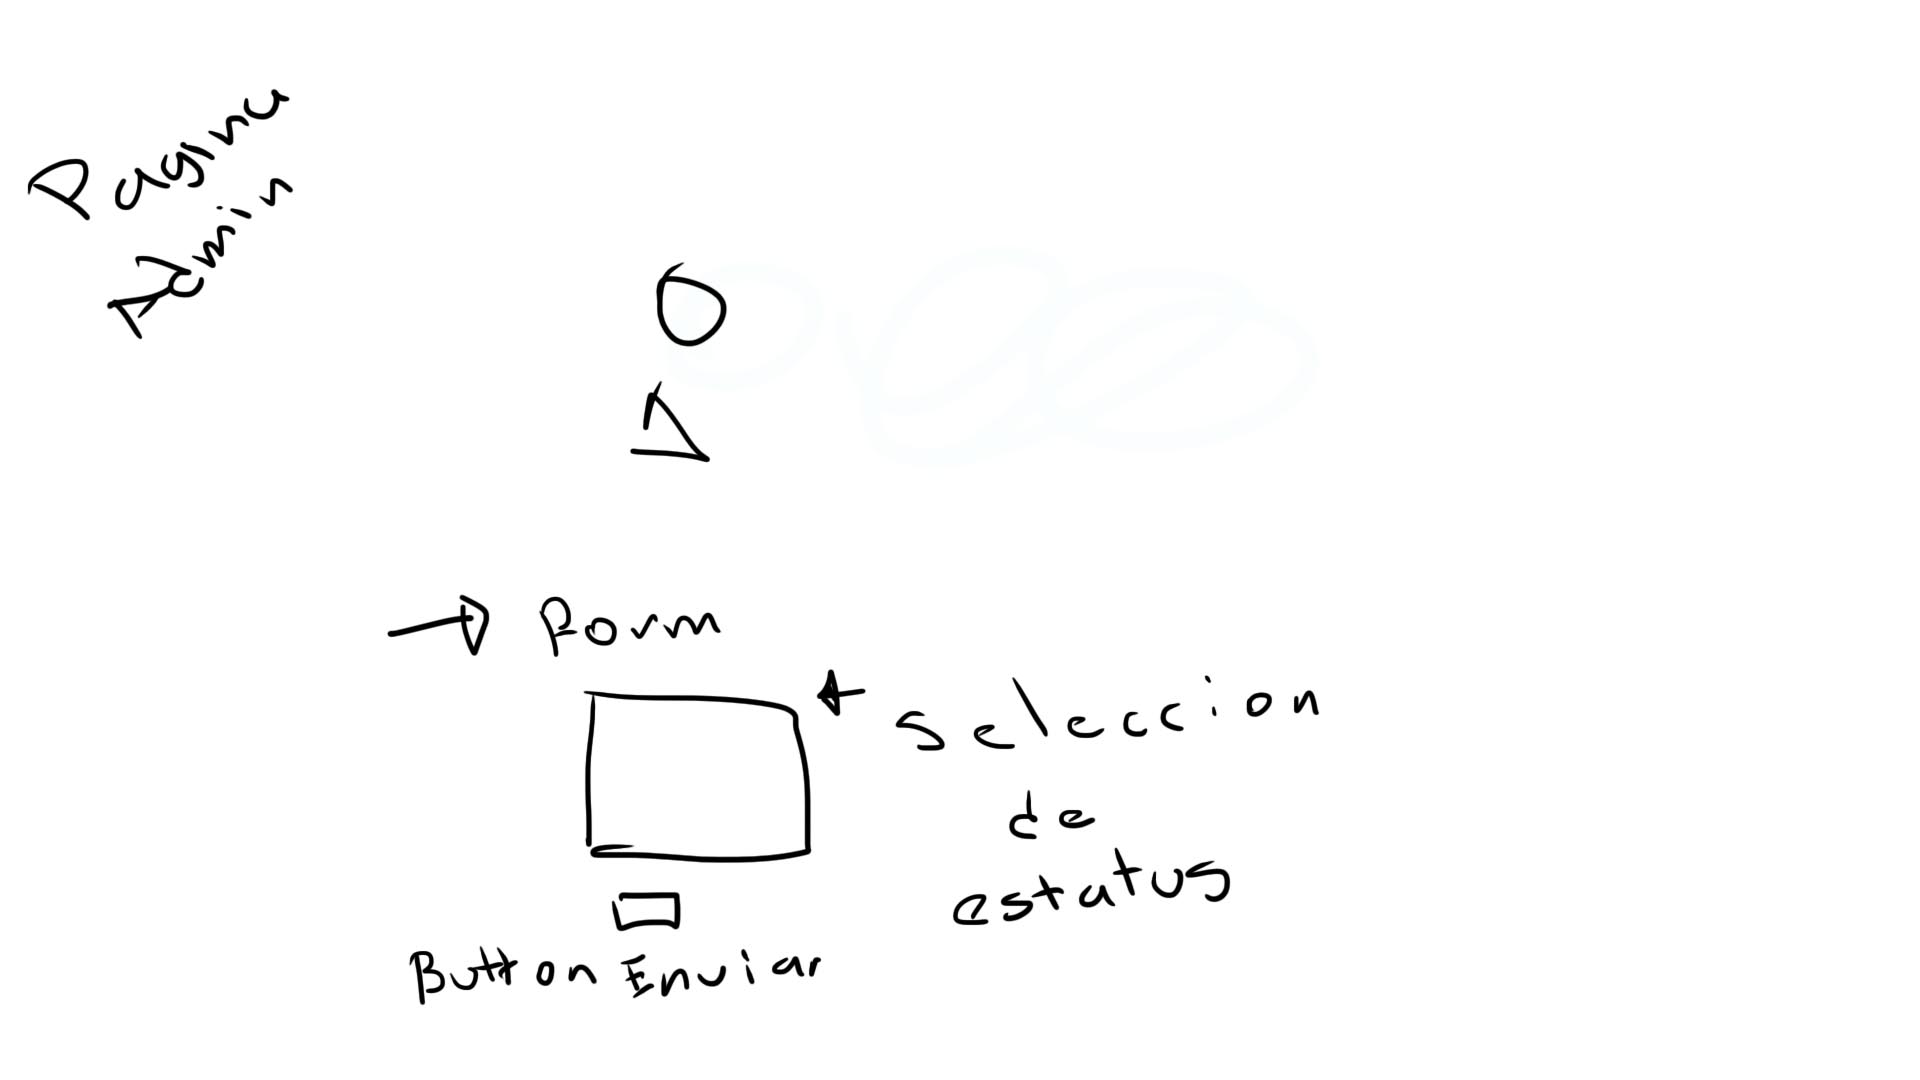 Pagina
Admin
Form
Seleccion
de
estatus
Button Enviar